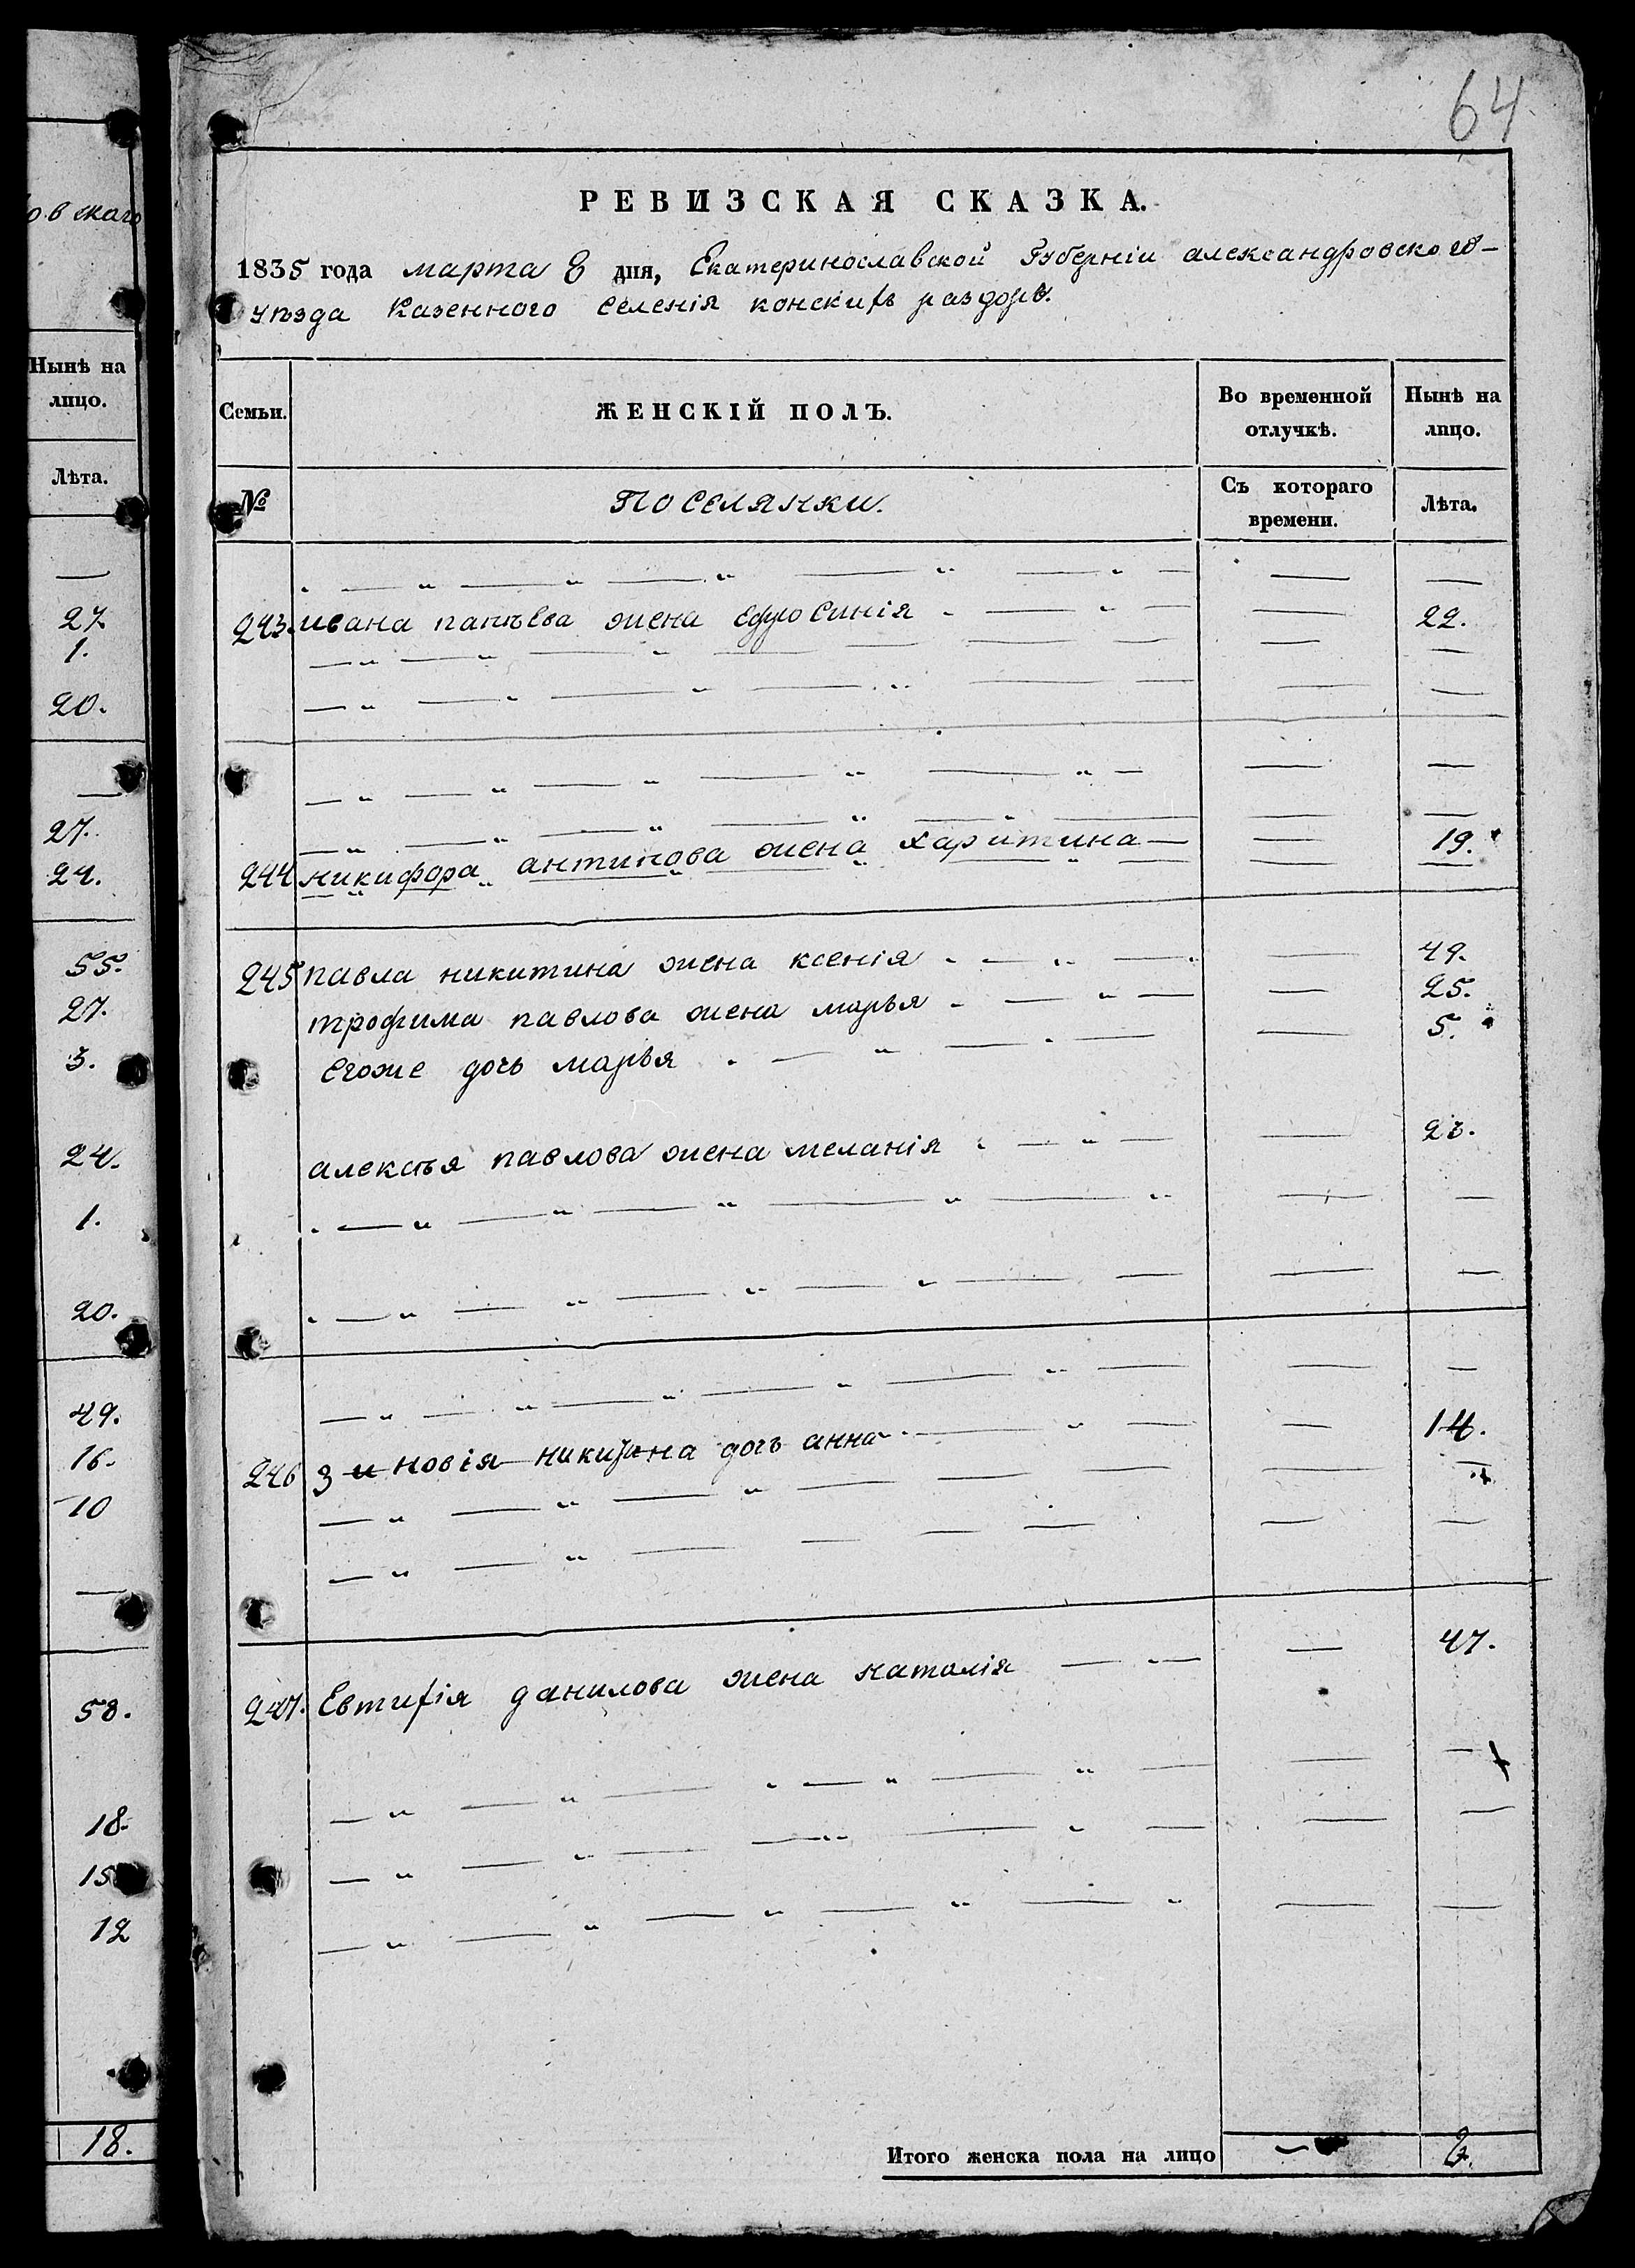 овскаго
Нынѣ на
лицо.
Лѣта.
27.
1.
20.
27.
24.
55.
27.
3.
24.
1.
20.
49.
16.
10
58.
18.
15
12
18.
64
РЕВИЗСКАЯ СКАЗКА.
1835 года марта 8 дня, Екатеринославской Губерніи александровского
уѣзда Казенного Селенія конскихъ раздоръ.
Семьи. ЖЕНСКІЙ ПОЛЪ. Во временной отлучкѣ. Нынѣ на лицо.
№ Поселянки. Съ котораго времени. Лѣта.
243. ивана пантѣева жена ефросинія 22.
244 никифора антипова жена харитина 19.
245 павла никитина жена ксенія 49.
трофима павлова жена марья 25.
егоже дочь марья 5.
алексѣя павлова жена меланія 23.
246 зиновія никитина дочь анна 14.
247. Евтихія данилова жена наталія 47.
Итого женска пола на лицо 8.